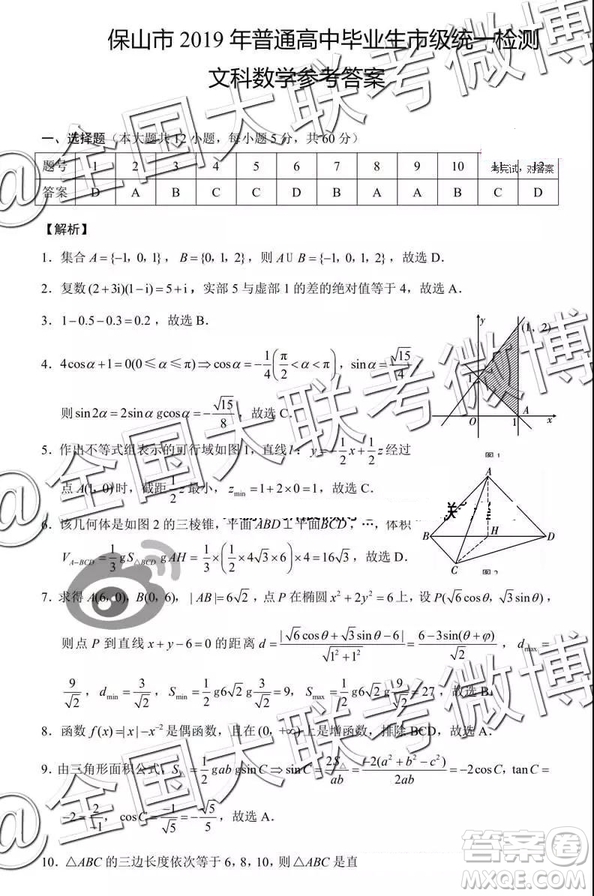 保山市 2019 年普通高中毕业生市级统一检测
文科数学参考答案
一、选择题（本大题共 12 小题，每小题 5 分，共 60 分）
题号 1 2 3 4 5 6 7 8 9 10 考完试，对答案
答案 D A B C B A C B A B C D
【解析】
1．集合 A={-1, 0, 1}，B={0, 1, 2}，则 A∪B={-1, 0, 1, 2}，故选 D．
2．复数 (2+3i)(1-i)=5+i，实部 5 与虚部 1 的差的绝对值等于 4，故选 A．
3．1-0.5-0.3=0.2，故选 B．
4．4cosα+1=0(0≤α≤π)⇒cosα=-1/4(π/2<α<π)，sinα=√15/4，
则 sin2α=2sinαgcosα=-√15/8，故选 C．
y
(1, 2)
O 1 A x
图 1
5．作出不等式组表示的可行域如图 1，直线 l：y=-1/2x+1/2z 经过
点 A(1, 0) 时，截距 1/2z 最小，z_min=1+2×0=1，
6．该几何体是如图 2 的三棱锥，平面 ABD⊥平面BCD，…，体积
V_{A-BCD}=1/3gS_{△BCD}gAH=1/3×(1/2×4√3×6)×4=16√3，故选 A．
A
B H D
C
图 2
7．求得 A(6, 0)，B(0, 6)，|AB|=6√2，点 P 在椭圆 x²+2y²=6 上，设 P(√6cosθ, √3sinθ)，
则点 P 到直线 x+y-6=0 的距离 d=|√6cosθ+√3sinθ-6|/√(1²+1²)=(6-3sin(θ+φ))/√2，d_max=
9/√2，d_min=3/√2，S_min=1/2g6√2g3/√2=9，S_max=1/2g6√2g9/√2=27，故选 C．
8．函数 f(x)=|x|-x⁻² 是偶函数，且在 (0, +∞) 上是增函数，排除 故选 B．
9．由三角形面积公式，S_△=1/2gabgsinC⇒sinC=2S_△/ab=-2(a²+b²-c²)/2ab=-2cosC，tanC=
-2=2/-1，cosC=-1/√5=-√5/5，故选 A．
10．△ABC 的三边长度依次等于 6，8，10，则 △ABC 是直
@全国大联考微博
@全国大联考微博
@全国大联考微博
答案圈
MXQE.COM